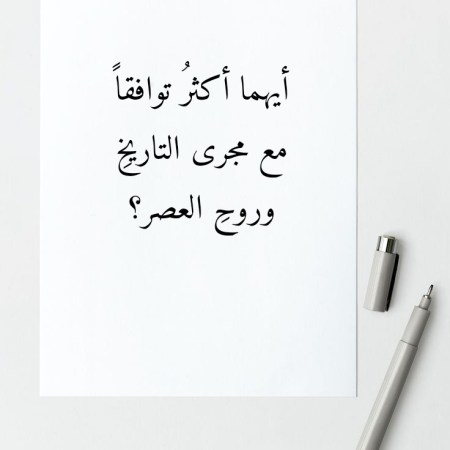 أيهما أكثرُ توافقاً
مع مجرى التاريخِ
وروحِ العصر؟